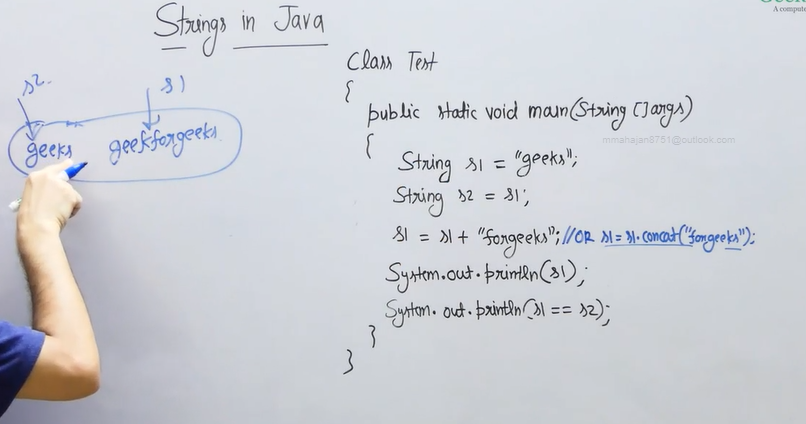 Strings in Java
s2
s1
geeks geekforgeeks
Class Test
{
public static void main(String []args)
{
String s1 = "geeks";
String s2 = s1;
s1 = s1 + "forgeeks"; //OR s1 = s1.concat("forgeeks");
System.out.println(s1);
System.out.println(s1 == s2);
}
}
mmahajan8751@outlook.com
A compute